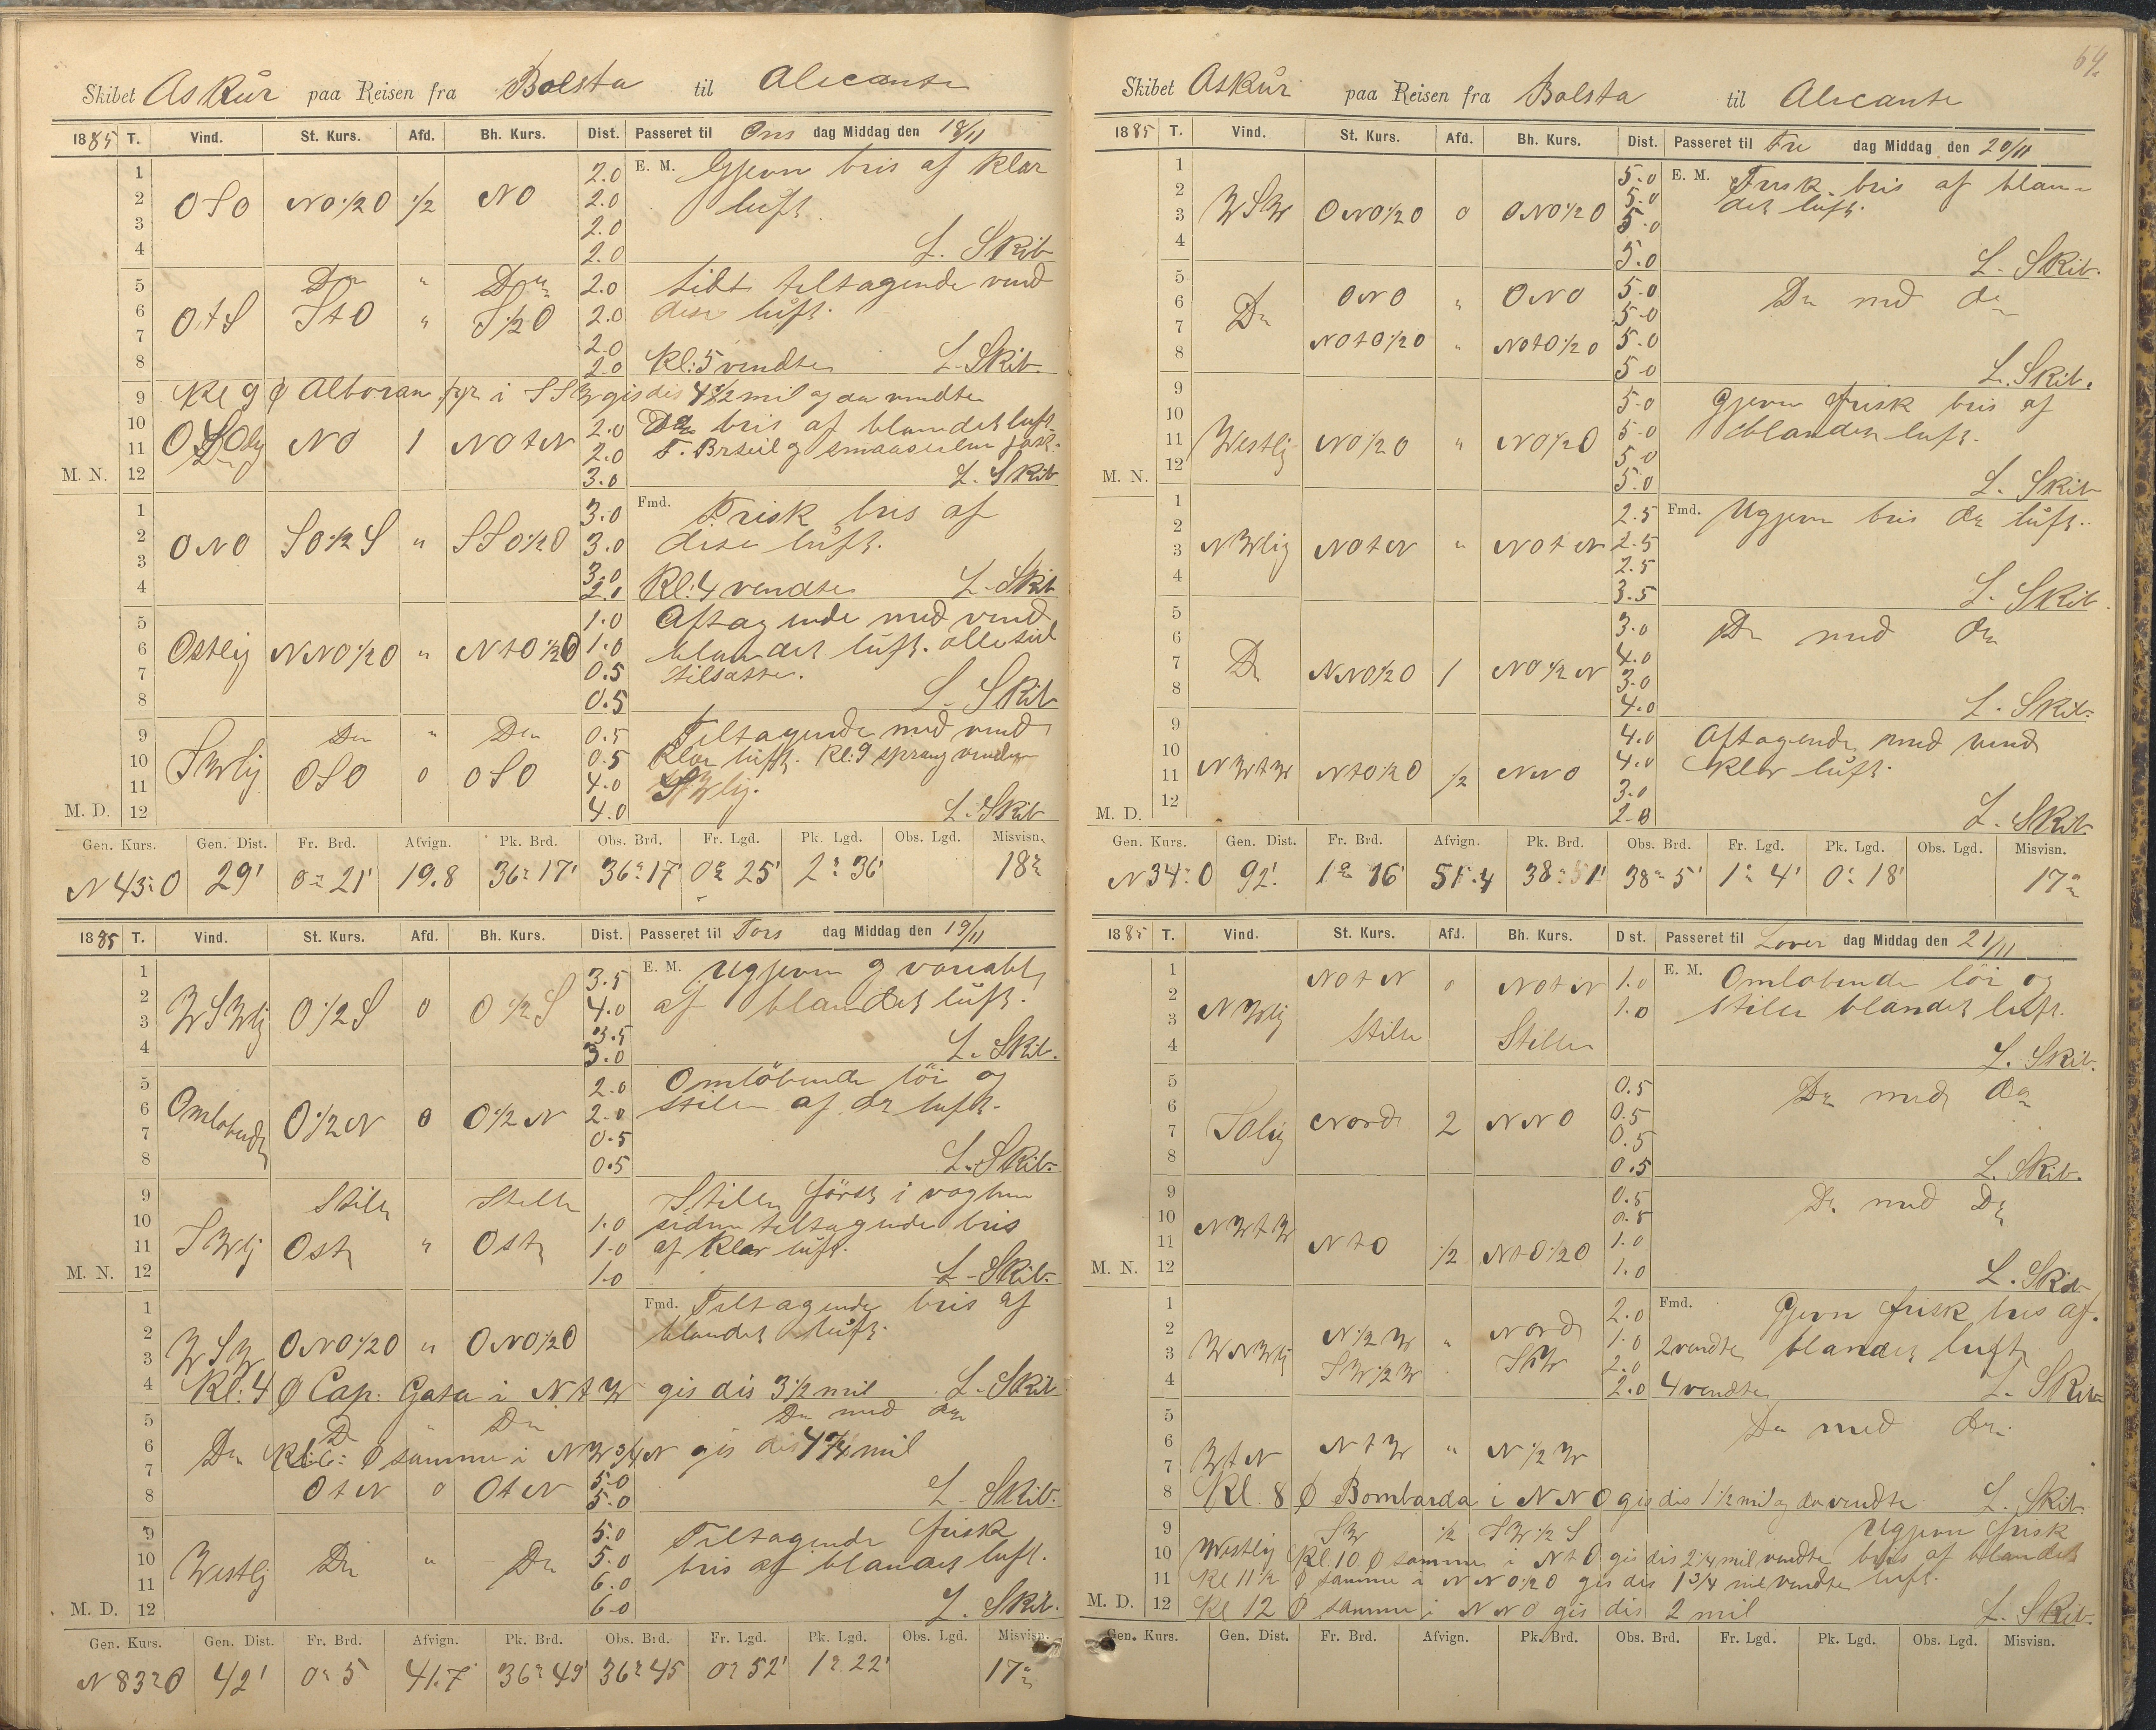 Skibet Askur paa Reisen fra Bolsta til Alicante
1885 T. Vind. St. Kurs. Afd. Bh. Kurs. Dist. Passeret til Ons dag Middag den 18/11
1 2.0 E. M. Gjevn bris af klar
2 OSO NO½O ½ NO 2.0 luft.
3 2.0
4 2.0 L. Skib
5 Do " Do 2.0 Lidt tiltagende vind
6 OtS StO " S½O 2.0 dise luft.
7 2.0
8 2.0 Kl: 5 vendte L. Skib.
9 Kl 9 Ø Alboran fyr i SSW gis dis 4½ mil og da vendte
10 NO 1 NOtN 2.0 bris af blandet luft.
11 2.0
M. N. 12 3.0 L. Skib
1 3.0 Fmd. Frisk bris af
2 ONO SO½S " SSO½O 3.0 dise luft.
3 3.0
4 2.0 Kl: 4 vendte L. Skib
5 1.0 Aftagende med vind
6 Ostlig NNO½O " NtO½O 1.0 blandet luft. alle seil
7 0.5 tilsatte.
8 0.5 L. Skib
9 Do " Do 0.5 Tiltagende med vind
10 SWlig OSO 0 OSO 0.5 klar luft. Kl: 9 sprang vinden
11 4.0 SWlig.
M. D. 12 4.0 L. Skib
Gen. Kurs. Gen. Dist. Fr. Brd. Afvign. Pk. Brd. Obs. Brd. Fr. Lgd. Pk. Lgd. Obs. Lgd. Misvisn.
N 43° O 29' 0° 21' 19.8 36° 17' 36° 17' 0° 25' 2° 36' 18°
1885 T. Vind. St. Kurs. Afd. Bh. Kurs. Dist. Passeret til Tors dag Middag den 19/11
1 3.5 E. M. Ugjevn og variabl
2 WSWlig O½S 0 O½S 4.0 af blandet luft.
3 3.5
4 3.0 L. Skib.
5 2.0 Omløbende løi og
6 Omløbende O½N 0 O½N 2.0 stille af do luft.
7 0.5
8 0.5 L. Skib.
9 Stille Stille Stille først i vagten
10 1.0 siden tiltagende bris
11 SWlig Ost " Ost 1.0 af klar luft.
M. N. 12 1.0 L. Skib.
1 Fmd. Tiltagende bris af
2 WSW ONO½O " ONO½O blandet luft.
3
4 Kl: 4 Ø Cap: Gata i NtW gis dis 3½ mil L. Skib
5 Do " Do Do med do
6 Do Kl: 6: Ø samme i NW¾N gis dis 4¾ mil
7 5.0
8 OtN 0 OtN 5.0 L. Skib.
9 5.0 Tiltagende frisk
10 Westlig Do " Do 5.0 bris af blandet luft.
11 6.0
M. D. 12 6.0 L. Skib.
Gen. Kurs. Gen. Dist. Fr. Brd. Afvign. Pk. Brd. Obs. Brd. Fr. Lgd. Pk. Lgd. Obs. Lgd. Misvisn.
N 83° O 42' 0° 5 41.7 36° 49' 36° 45 0° 52' 1° 22' 17°
64.
Skibet Askur paa Reisen fra Bolsta til Alicante
1885 T. Vind. St. Kurs. Afd. Bh. Kurs. Dist. Passeret til Fre dag Middag den 20/11
1 5.0 E. M. Frisk bris af blan-
2 WSW ONO½O 0 ONO½O 5.0 det luft.
3 5.0
4 5.0 L. Skib.
5 ONO " ONO 5.0 Do med do
6 Do 5.0
7 NOtO½O " NOtO½O 5.0
8 5.0 L. Skib.
9 5.0 Gjevn frisk bris af
10 Westlig NO½O " NO½O 5.0 blandet luft.
11 5.0
M. N. 12 5.0 L. Skib
1 2.5 Fmd. Ugjevn bris do luft.
2 NWlig NOtN " NOtN 2.5
3 2.5
4 3.5 L. Skib
5 3.0 Do med do
6 Do NNO½O 1 NO½N 4.0
7 3.0
8 4.0 L. Skib.
9 4.0 Aftagende med vind
10 NWtW NtO½O ½ NNO 4.0 klar luft.
11 3.0
M. D. 12 2.0 L. Skib.
Gen. Kurs. Gen. Dist. Fr. Brd. Afvign. Pk. Brd. Obs. Brd. Fr. Lgd. Pk. Lgd. Obs. Lgd. Misvisn.
N 34° O 92'. 1° 16' 51.4 38° 51' 38° 5' 1° 4' 0° 18' 17°
1885 T. Vind. St. Kurs. Afd. Bh. Kurs. Dist. Passeret til Lover dag Middag den 21/11
1 NOtN 0 NOtN 1.0 E. M. Omløbende løi og
2 NWlig 1.0 stille blandet luft.
3 Stille Stille
4 L. Skib.
5 0.5 Do med do
6 Solig Nord 2 NNO 0.5
7 0.5
8 0.5 L. Skib.
9 0.5 Do med Do
10 NWtW 0.5
11 NtO ½ NtO½O 1.0
M. N. 12 1.0 L. Skib
1 2.0 Fmd. Gjevn frisk bris af.
2 WNWlig N½W " Nord 1.0 2 vendte blandet luft
3 SW½W SW 2.0
4 2.0 4 vendte L. Skib
5 Do med do
6 WtN NtW " N½W
7
8 Kl. 8 Ø Bombarda i NNO gis dis 1½ mil og da vendte L. Skib.
9 Westlig SW ½ SW½S Ugjevn frisk
10 Kl. 10 Ø samme i NtO gis dis 2¼ mil vendte bris af blandet
11 Kl 11½ Ø samme i NNO½O gis dis 1¾ mil vendte luft.
M. D. 12 Kl 12 Ø samme i NNO gis dis 2 mil L. Skib.
Gen. Kurs. Gen. Dist. Fr. Brd. Afvign. Pk. Brd. Obs. Brd. Fr. Lgd. Pk. Lgd. Obs. Lgd. Misvisn.